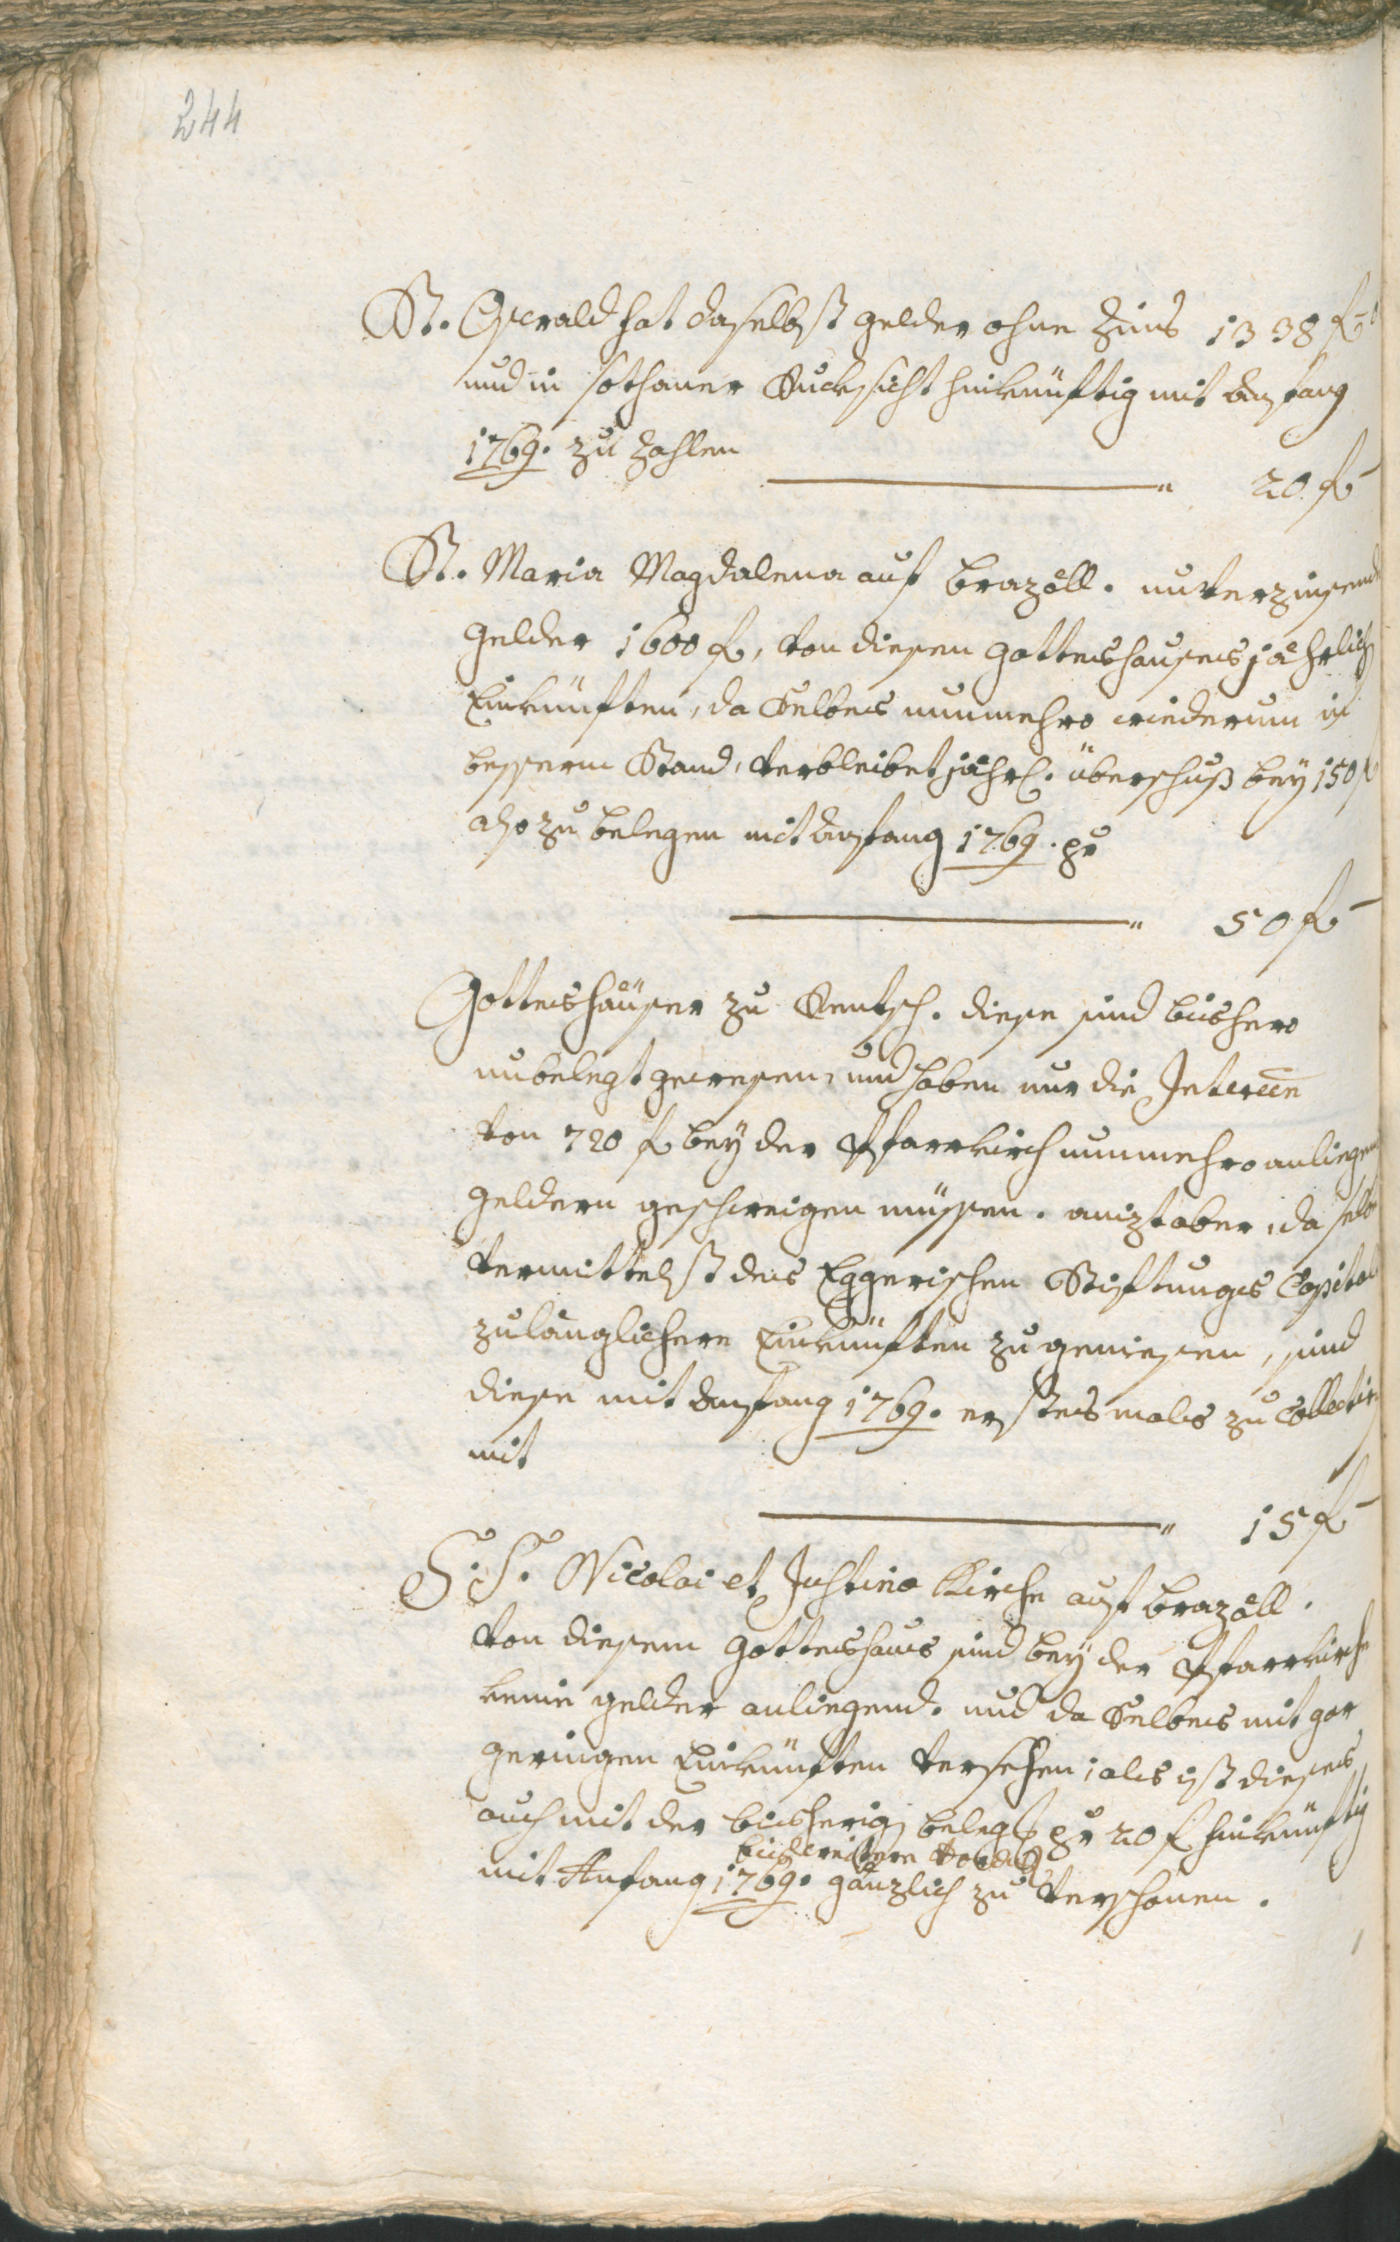 244
St. Oswald hat daselbst gelder ohne Zins 1338 f
und in sothaner Rucksicht hinkünftig mit Anfang
1769. zu zahlen
20 f
St. Maria Magdalena auf Prazöll. unverzinsend
Gelder 1600 f, von diesen Gotteshauses jährlich
Einkünften, da Selbes nunmehro wiederum in
besserm Stand, verbleibet jährl. überschuß bey 150 f
also zu belegen mit Anfang 1769. pr
50 f
Gotteshäuser zu Rentsch. diese sind bishero
unbelegt gewesen, und haben nur die Interessen
von 720 f bey der Pfarrkirch nunmehro anliegen
geldern geschweigen müssen. anizt aber, da selbe
vermittelst des Eggerischen Stiftungs Capitals
zulänglichere Einkünften zu geniesen, sind
diese mit Anfang 1769. erstes mals zu Collectiren
mit
15 f
S. S. Nicolai et Justina Kirche auf Prazöll.
von diesem Gotteshaus sind bey der Pfarrkirche
keine gelder anliegend. und da Selbes mit gar
geringen Einkünften versehen; als ist dieses
auch mit der bisherig belegt pr 20 f hinkünftig
bis weitere
mit Anfang 1769. gänzlich zu verschonen.